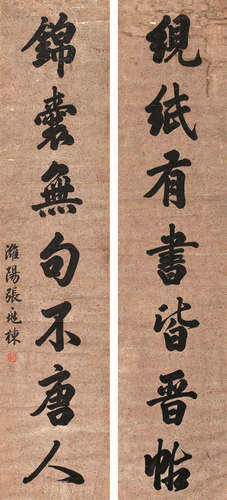 絸紙有書皆晉帖
錦囊無句不唐人
濰陽張兆棟